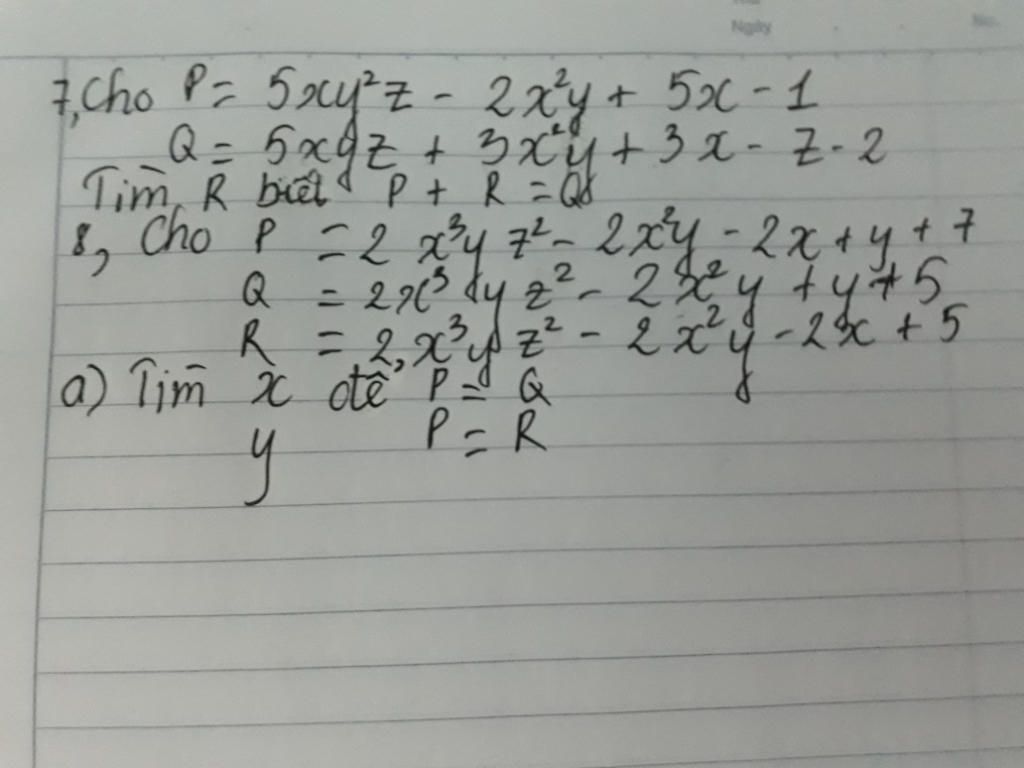 Ngày No.
7, Cho P = 5xy²z - 2x²y + 5x - 1
Q = 5xyz + 3x²y + 3x - z - 2
Tìm R biết P + R = Q
8, Cho P = 2 x³y z² - 2x²y - 2x + y + 7
Q = 2x³ y z² - 2x²y + y + 5
R = 2x³y z² - 2x²y - 2x + 5
a) Tìm x để P = Q
y P = R